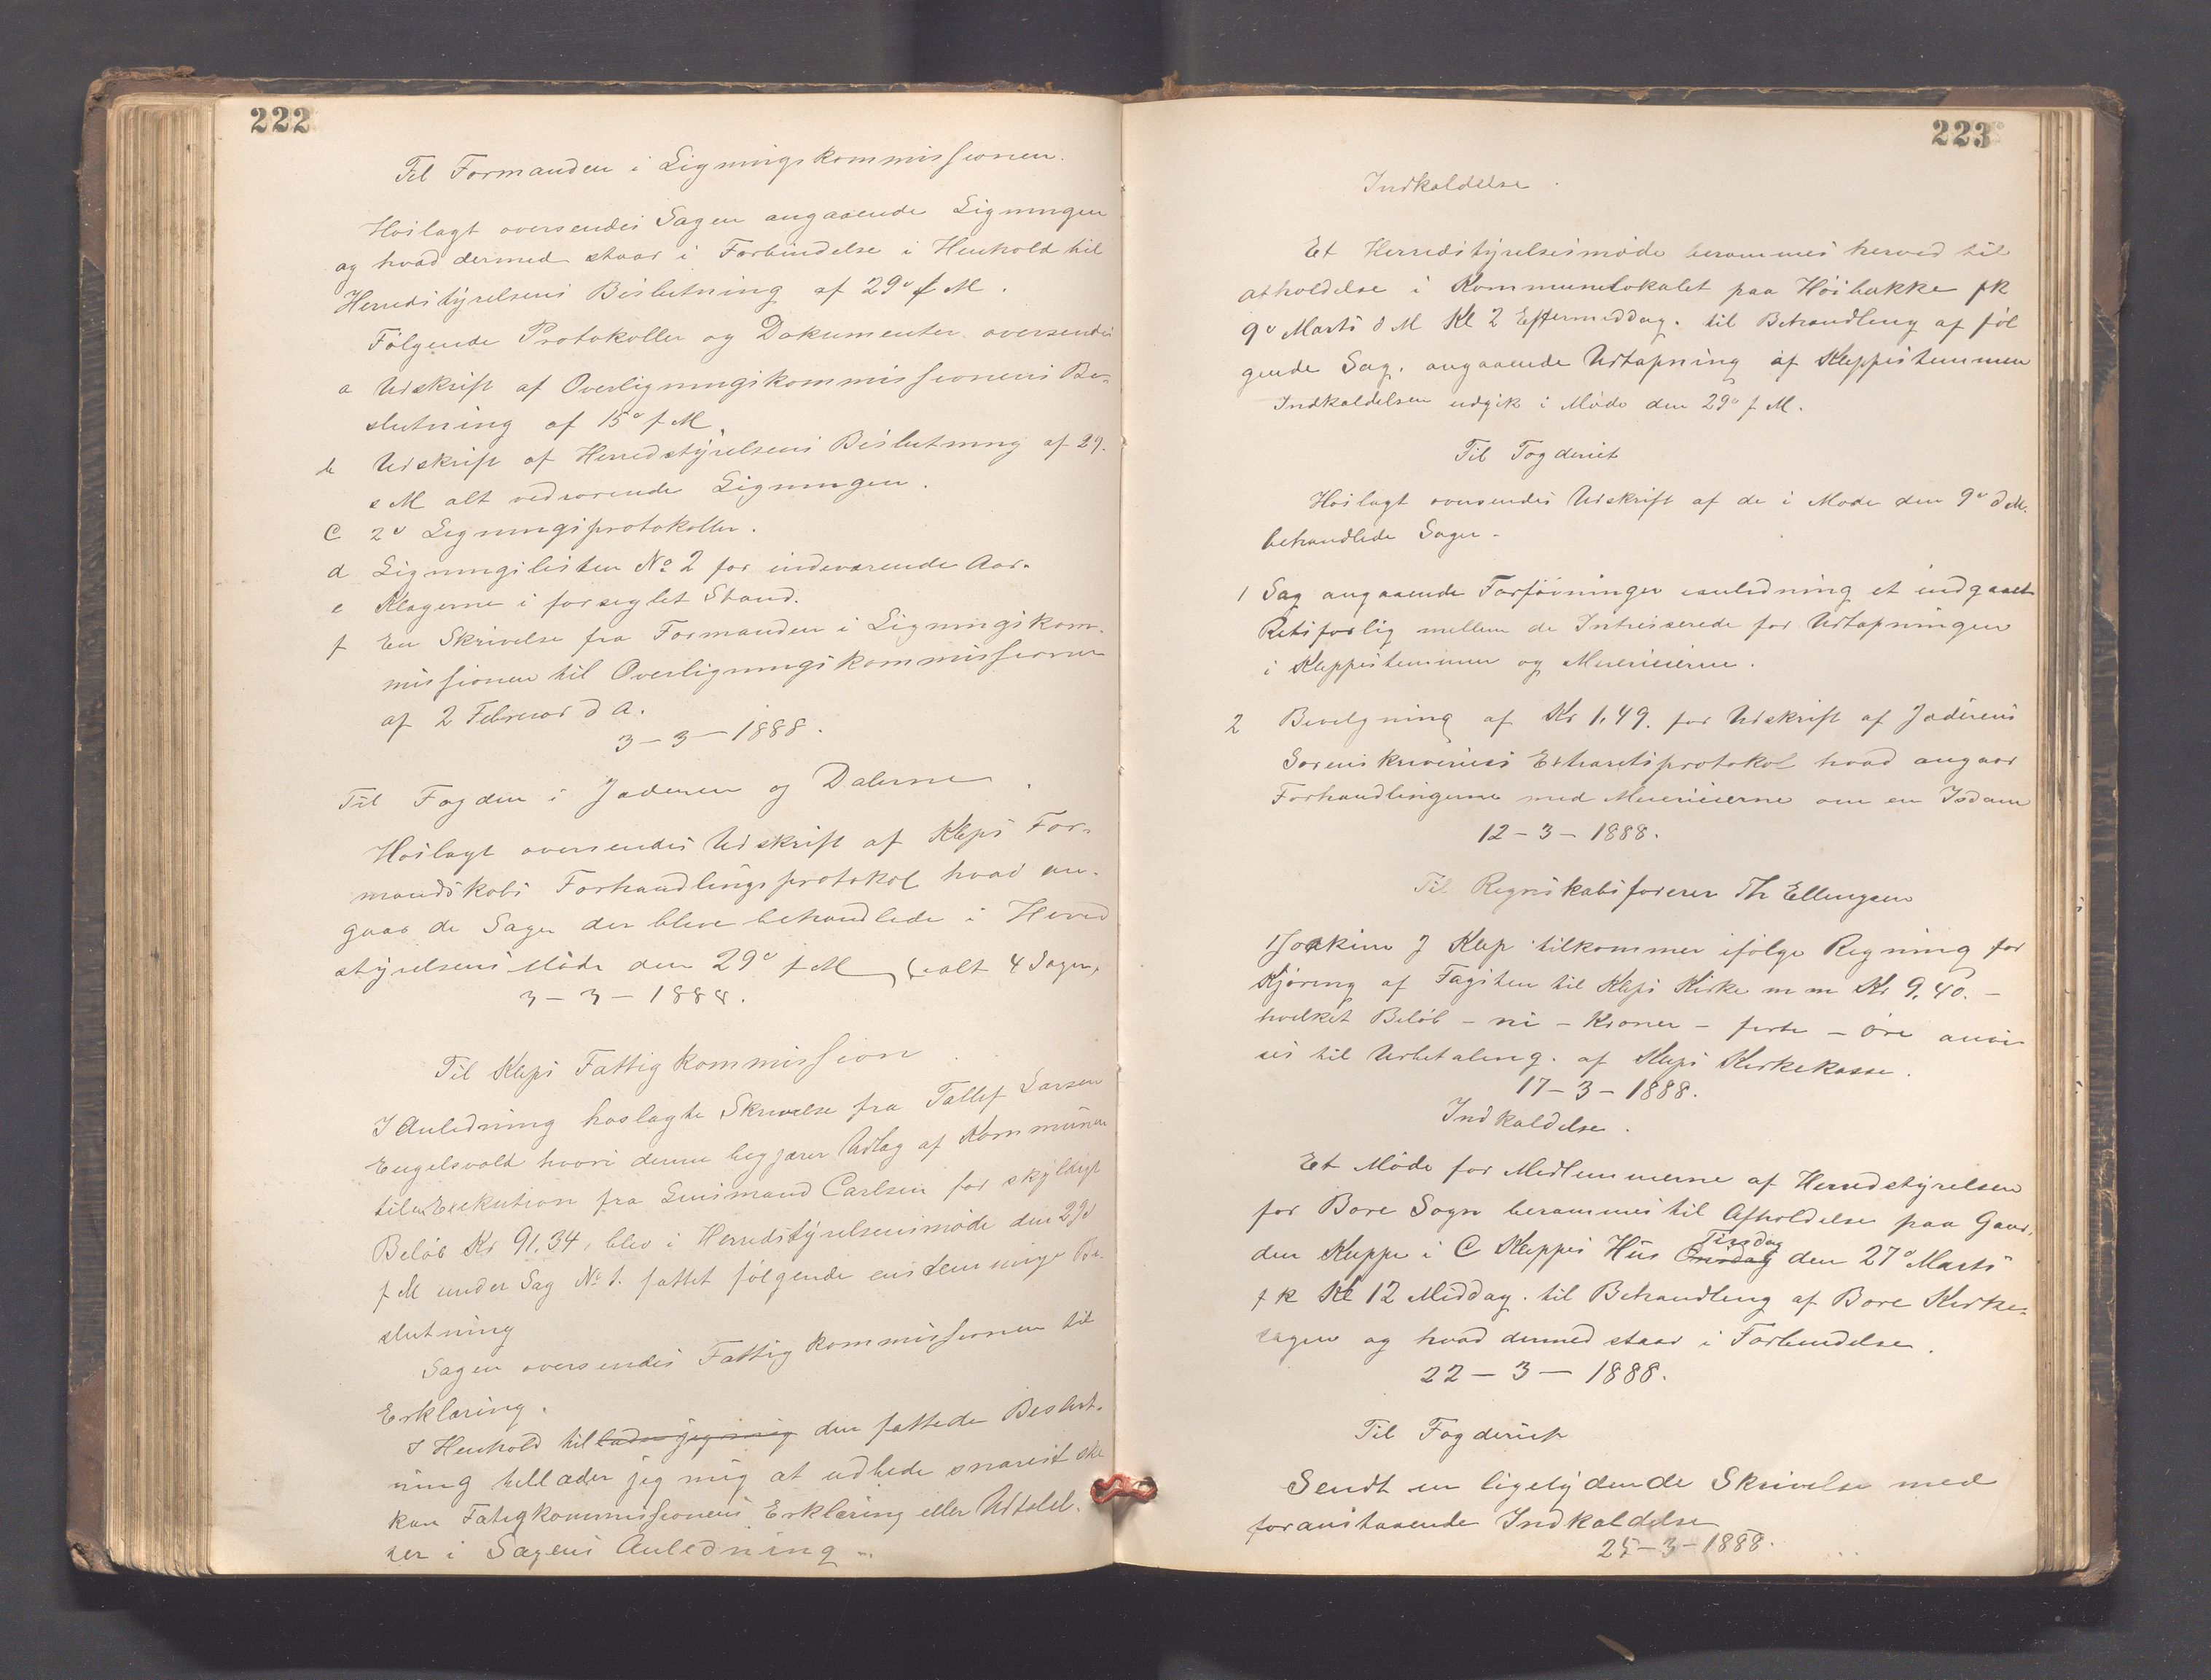 222
Til Formanden i Ligningskommissionen.
Hoslagt oversendes Sagen angaaende Ligningen
og hvad dermed staar i Forbindelse i Henhold til
Herredstyrelsens Beslutning af 29de f M.
Følgende Protokoller og Dokumenter oversendes
a Udskrift af Overligningskommissionens Be-
slutning af 15de f M.
b Udskrift af Herredstyrelsens Beslutning af 29.
s M alt vedrørende Ligningen.
c 2de Ligningsprotokoller.
d Ligningslisten No 2 for indeværende Aar.
e Klagerne i forseglet Stand.
f En Skrivelse fra Formanden i Ligningskom-
missionen til Overligningskommissionen
af 2 Februar d A.
3-3-1888.
Til Fogden i Jæderen og Dalerne
Hoslagt oversendes Udskrift af Kleps For-
mandskabs Forhandlingsprotokol hvad an-
gaar de Sager der bleve behandlede i Herred
styrelsens Møde den 29de f M (ialt 4 Sager,
3-3-1888.
Til Kleps Fattigkommission
I Anledning hoslagte Skrivelse fra Tollef Larsen
Engelsvold hvori denne begjærer Udlag af Kommunen
til en Exekution fra Lensmand Carlsen for skyldigt
Beløb Kr 91,34, blev i Herredstyrelsensmøde den 29d
f M under Sag No 1. fattet følgende enstemmige Be-
slutning
Sagen oversendes Fattigkommissionen til
Erklæring.
I Henhold til lader jeg mig den fattede Beslut-
ning tillader jeg mig at udbede snarest ske
kan Fatigkommissionens Erklæring eller Udtalel-
ser i Sagens Anledning.
223
Indkaldelse.
Et Herredstyrelsesmøde berammes herved til
afholdelse i Kommunelokalet paa Høibakke fk
9de Marts d M Kl 2 Eftermiddag. til Behandling af føl
gende Sag. angaaende Udtapning af Kleppestemmen
Indkaldelsen udgik i Møde den 29de f M.
Til Fogderiet
Hoslagt oversendes Udskrift af de i Møde den 9de d M.
behandlede Sager.
1 Sag angaaende Forføininger i anledning et indgaaet
Retsforlig mellem de Intresserede for Udtapningen
i Kleppestemmen og Meierierne.
2 Bevilgning af Kr 1,49. for Udskrift af Jæderens
Sorenskriveries Extraretsprotokol hvad angaar
Forhandlingerne med Meierierne om en Isdam
12-3-1888.
Til Regnskabsfører Th Ellingsen
Joakim J Klep tilkommer ifølge Regning for
Kjøring af Tagsten til Kleps Kirke m m Kr 9,40. -
hvilket Beløb - ni - Kroner - førti - øre anvi
ses til Udbetaling. af Kleps Kirkekasse.
17-3-1888.
Indkaldelse.
Et Møde for Medlemmerne af Herredstyrelsen
for Bore Sogn berammes til Afholdelse paa Gaar-
den Kleppe i C Kleppes Hus Onsdag Tirsdag den 27de Marts
f k Kl 12 Middag. til Behandling af Bore Kirke-
sagen og hvad dermed staar i Forbindelse.
22-3-1888.
Til Fogderiet
Sendt en ligelydende Skrivelse med
foranstaaende Indkaldelse
25-3-1888.